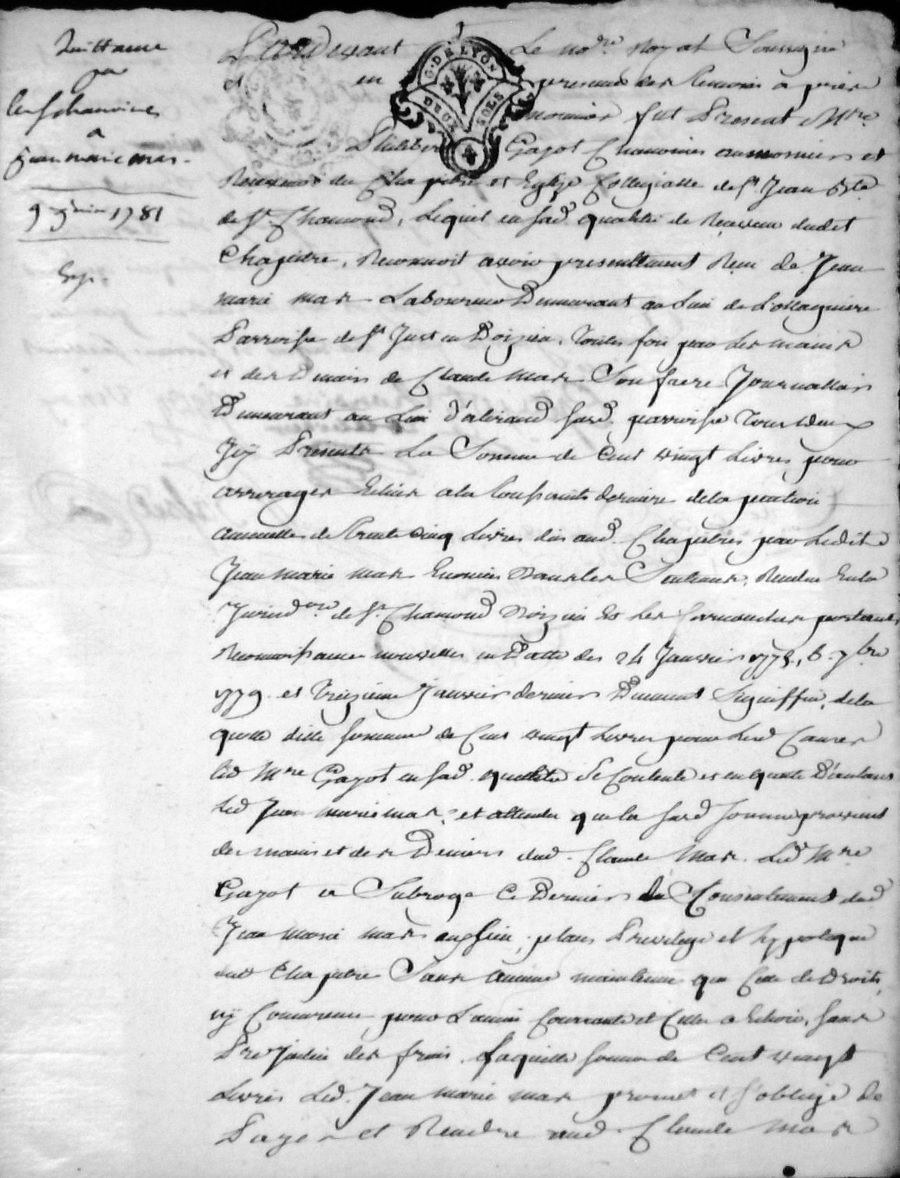 Quittance
par
les s. chanoines
a
jean marie mas.
9 janvier 1781
Exp.
G. DE LYON
DEUX SOLS
Pardevant Le no.re Royal Soussigné
et en presence des temoins a pres
nommés fut Present M.re
Gayot Chanoine aumonier et
Receveur du Chapitre et Eglize Collegialle de St. Jean Bte.
de St. Chamond, Lequel en sad. qualité de Receveur dudit
Chapitre, Reconnoit avoir presentement Reçu de Jean
marie mas Laboureur Demeurant au Lieu de
Parroisse de St. Just en Doizieu, toutes fois par les mains
et des Deniers de Claude mas Son frere Journallier
Demeurant au Lieu susd. parroisse tous deux
Icy Presents La Somme de Cent vingt Livres, pour
arrerages Echus a la toussaints derniere de la pention
annuelle de trente Cinq Livres düe aud. Chapitre par Ledit
Jean Marie mas Enoncée Dans les Rendue En la
Jurisd.on de St. Chamond Doizieu Et les portant
Reconnoissance nouvelle en Datte des 24 Janvier 1775, 6. 7bre
1779 et treizieme Janvier dernier Duement Signiffiée, de la
quelle ditte somme de Cent vingt Livres pour Lesd. Causes
led. M.re Gayot en sad. qualité Se Contente et en quitte D'autant
led. Jean Marie mas, et attendu que la susd. somme provient
des mains et des Deniers dud. Claude Mas. Led. M.re
Gayot a Subrogé Ce Dernier du Consentement dud.
Jean Marie mas aux lieu, place, Privilege et hypoteque
dud. Chapitre Sans aucune maintenue que Celle de Droit,
ny Concurrence pour L'année Courrante et Celles a Echoir, sans
Prejudice des frais. Laquelle somme de Cent vingt
Livres Led. Jean Marie mas promet et s'oblige de
Payer et Rendre aud. Claude Mas